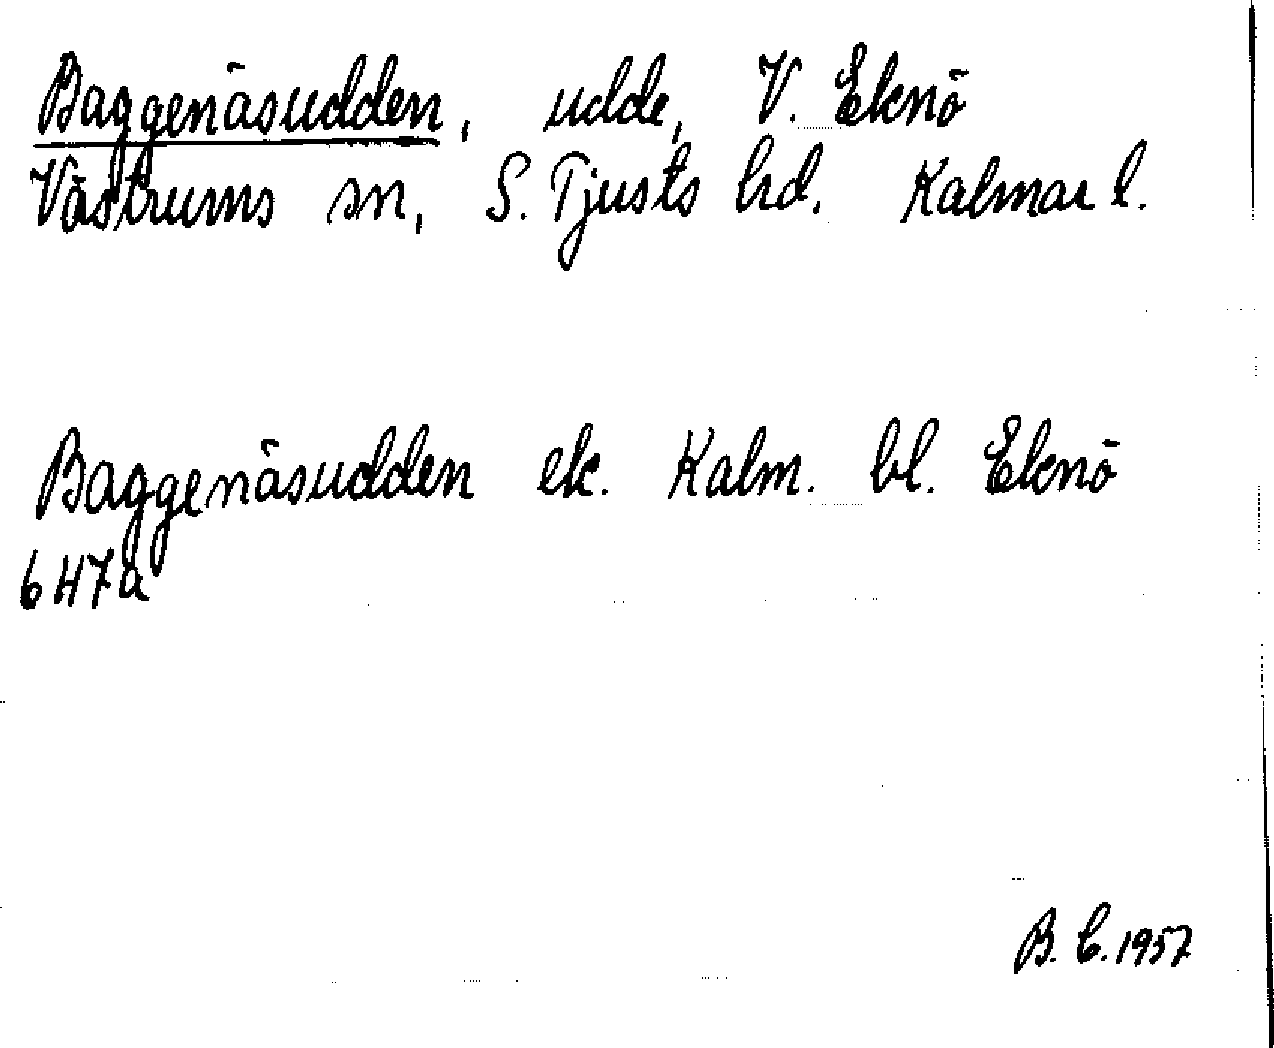 Baggenäsudden, udde, V. Eknö
Västrums sn, S. Tjusts hd. Kalmar l.
Baggenäsudden ek. Kalm. bl. Eknö
6H7a
B. C. 1957